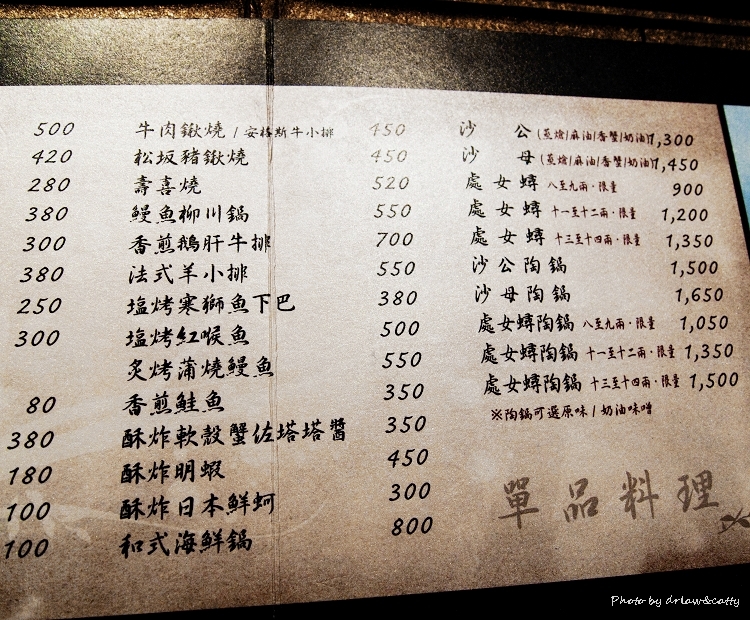 500
420
280
380
300
380
250
300
80
380
180
100
100
牛肉鍬燒 / 安格斯牛小排 450
松坂豬鍬燒 450
壽喜燒 520
鰻魚柳川鍋 550
香煎鵝肝牛排 700
法式羊小排 550
塩烤寒獅魚下巴 380
塩烤紅喉魚 500
炙烤蒲燒鰻魚 550
香煎鮭魚 350
酥炸軟殼蟹佐塔塔醬 350
酥炸明蝦 450
酥炸日本鮮蚵 300
和式海鮮鍋 800
沙 公 (蒸燴/麻油/香蟹/奶油) 1,300
沙 母 (蒸燴/麻油/香蟹/奶油) 1,450
處女蟳 八至九兩·限量 900
處女蟳 十一至十二兩·限量 1,200
處女蟳 十三至十四兩·限量 1,350
沙公陶鍋 1,500
沙母陶鍋 1,650
處女蟳陶鍋 八至九兩·限量 1,050
處女蟳陶鍋 十一至十二兩·限量 1,350
處女蟳陶鍋 十三至十四兩·限量 1,500
※陶鍋可選原味 / 奶油味噌
單品料理
Photo by drlaw&catty